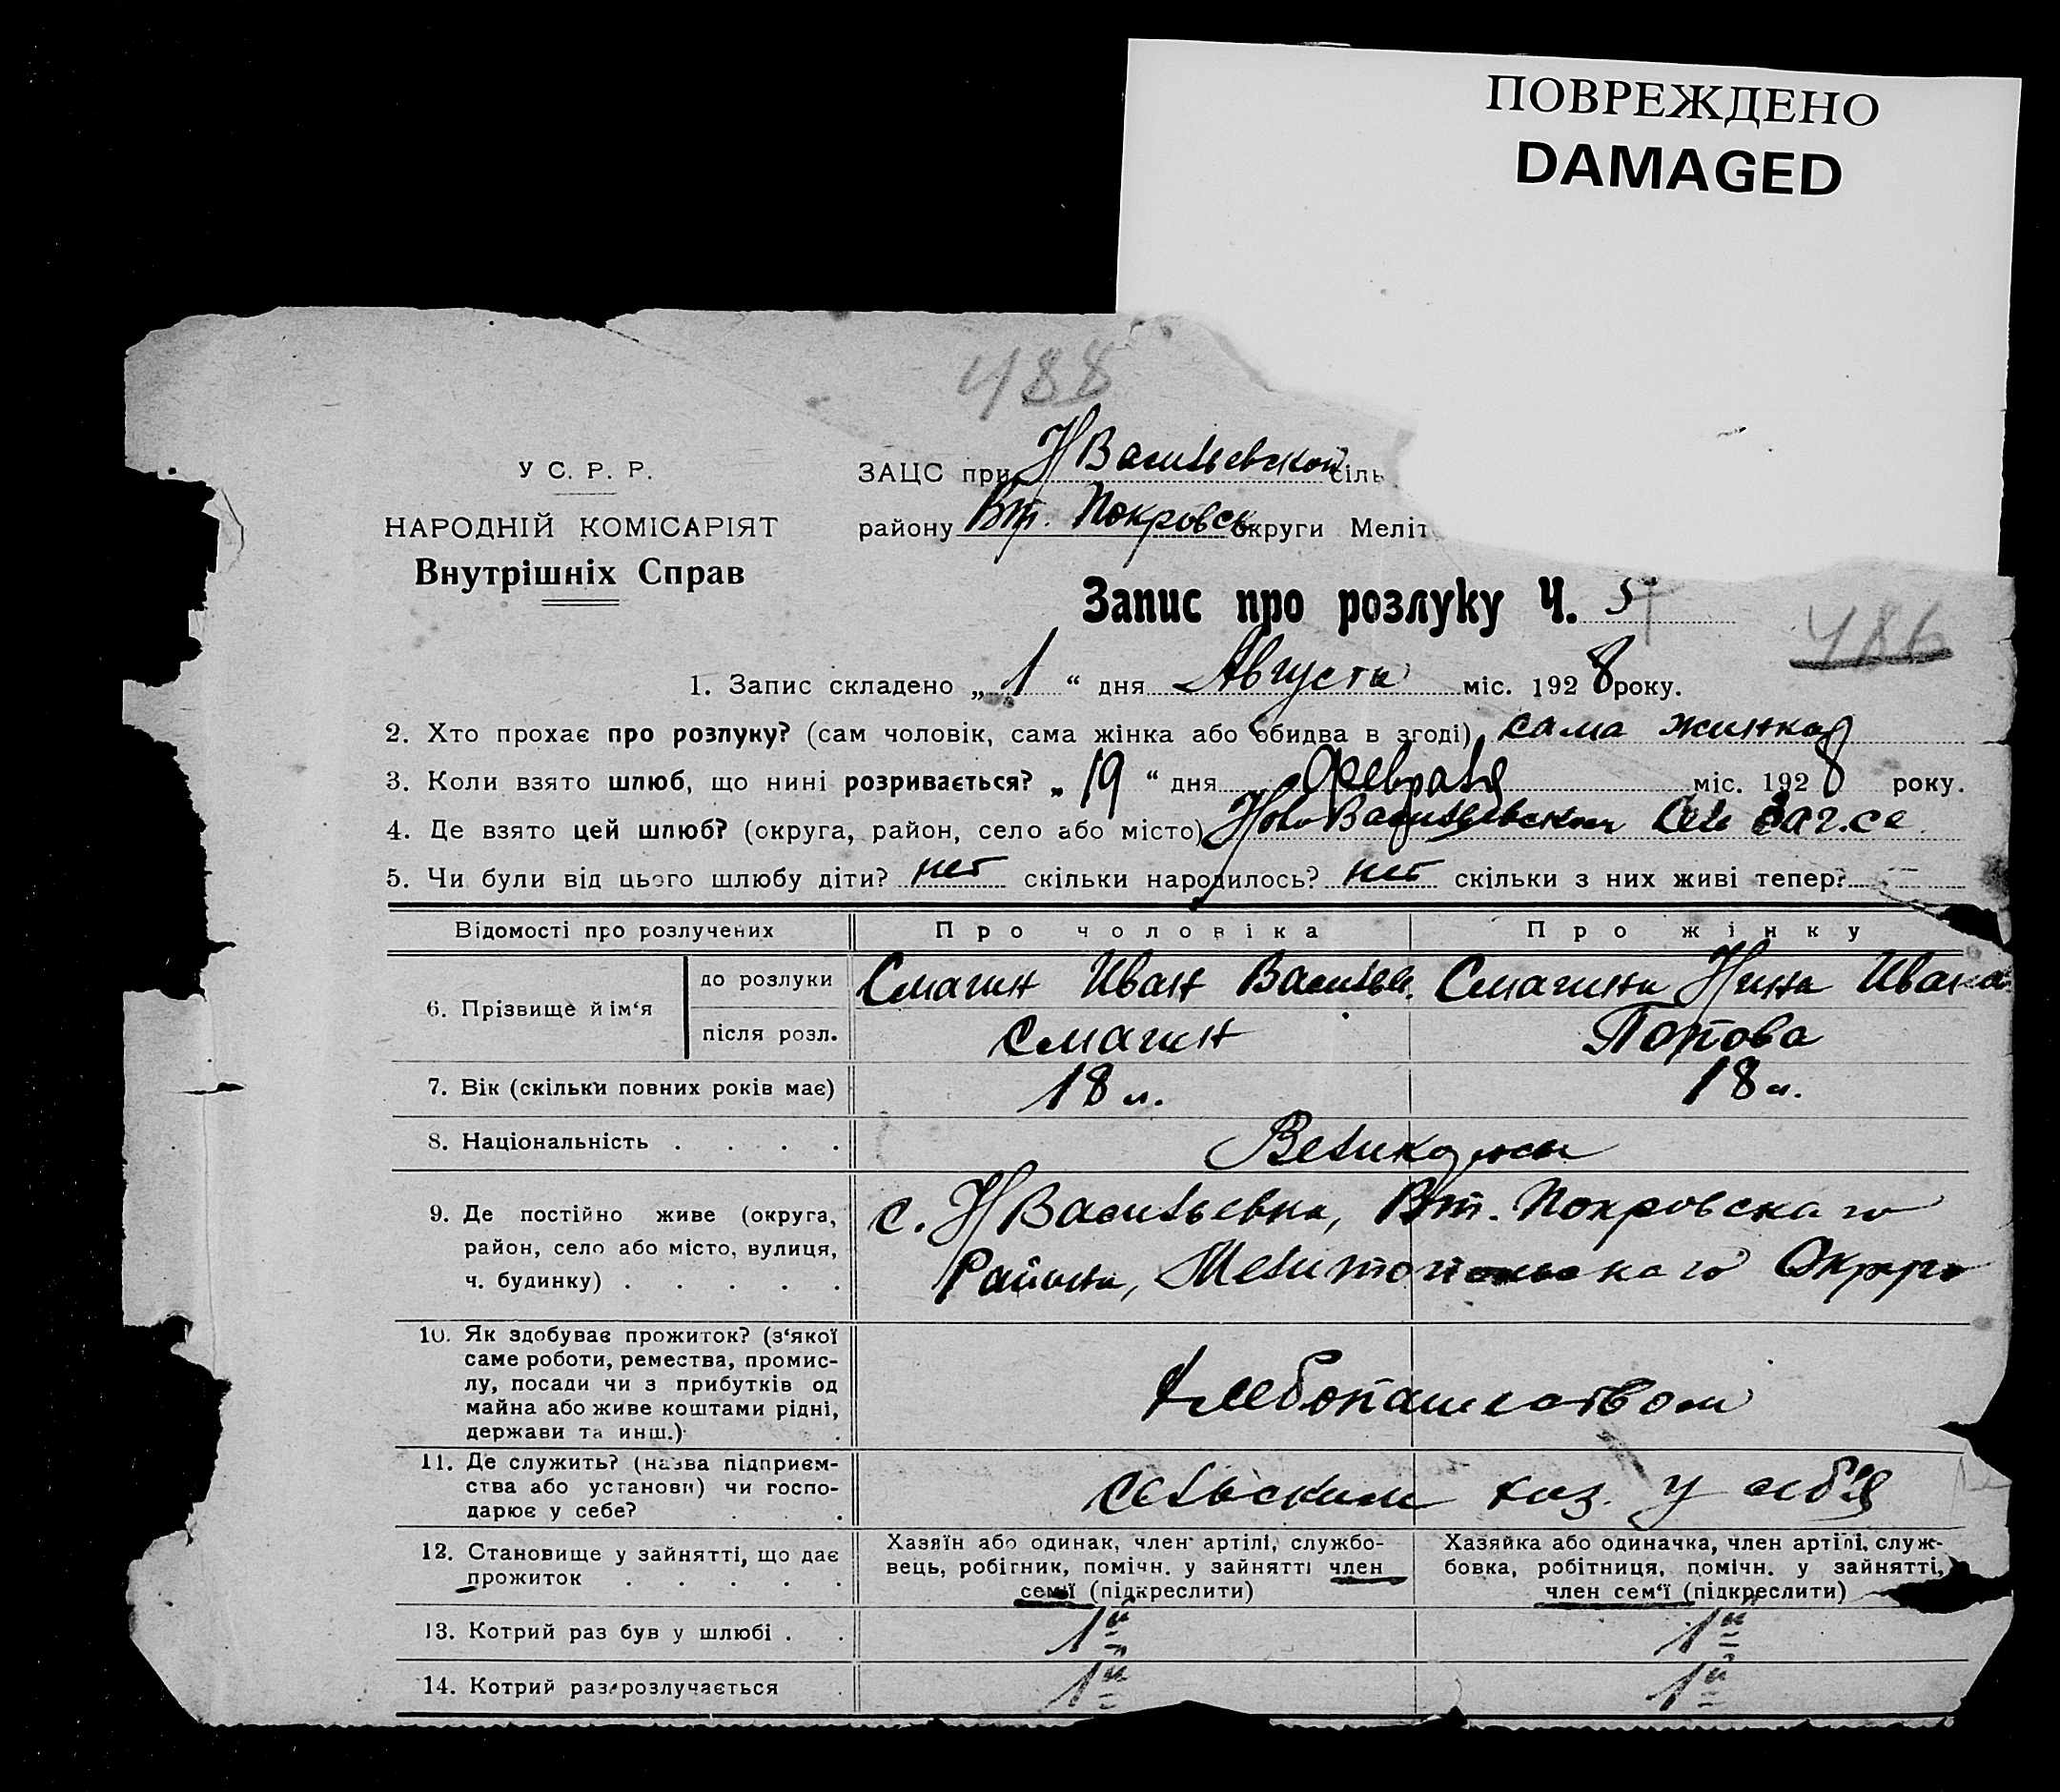 ПОВРЕЖДЕНО
DAMAGED
488
У С. Р. Р.
НАРОДНІЙ КОМІСАРІЯТ
Внутрішніх Справ
ЗАЦС при Н Васильевской сіль
району Вт. Покровск округи Меліт
Запис про розлуку Ч. 5
486
1. Запис складено „ 1 “ дня Августа міс. 1928 року.
2. Хто прохає про розлуку? (сам чоловік, сама жінка або обидва в згоді) сама жинка
3. Коли взято шлюб, що нині розривається? „ 19 “ дня Февраля міс. 1928 року.
4. Де взято цей шлюб? (округа, район, село або місто) Ново Васильевском Сель Загсе
5. Чи були від цього шлюбу діти? нет скільки народилось? нет скільки з них живі тепер?
Відомості про розлучених
Про чоловіка
Про жінку
6. Прізвище й ім‘я
до розлуки Смагин Иван Василье. Смагина Нина Иван
після розл. Смагин Попова
7. Вік (скільки повних років має) 18 л. 18 л.
8. Національність . . . . Великоросы
9. Де постійно живе (округа,
район, село або місто, вулиця,
ч. будинку) . . . . .
с. Н Васильевка, Вт. Покровскаго
Района, Мелитопольскаго Округа
10. Як здобуває прожиток? (з‘якої
саме роботи, ремества, промис-
лу, посади чи з прибутків од
майна або живе коштами рідні,
держави та инш.)
Хлебопашеством
11. Де служить? (назва підприєм-
ства або установи) чи госпо-
дарює у себе?
сельским хоз. у себя
12. Становище у зайнятті, що дає
прожиток . . . . .
Хазяїн або одинак, член артілі, службо-
вець, робітник, помічн. у зайнятті член
семї (підкреслити)
Хазяйка або одиначка, член артілі, служ-
бовка, робітниця, помічн. у зайнятті,
член сем‘ї (підкреслити)
13. Котрий раз був у шлюбі . . 1й 1й
14. Котрий раз розлучається . 1й 1й